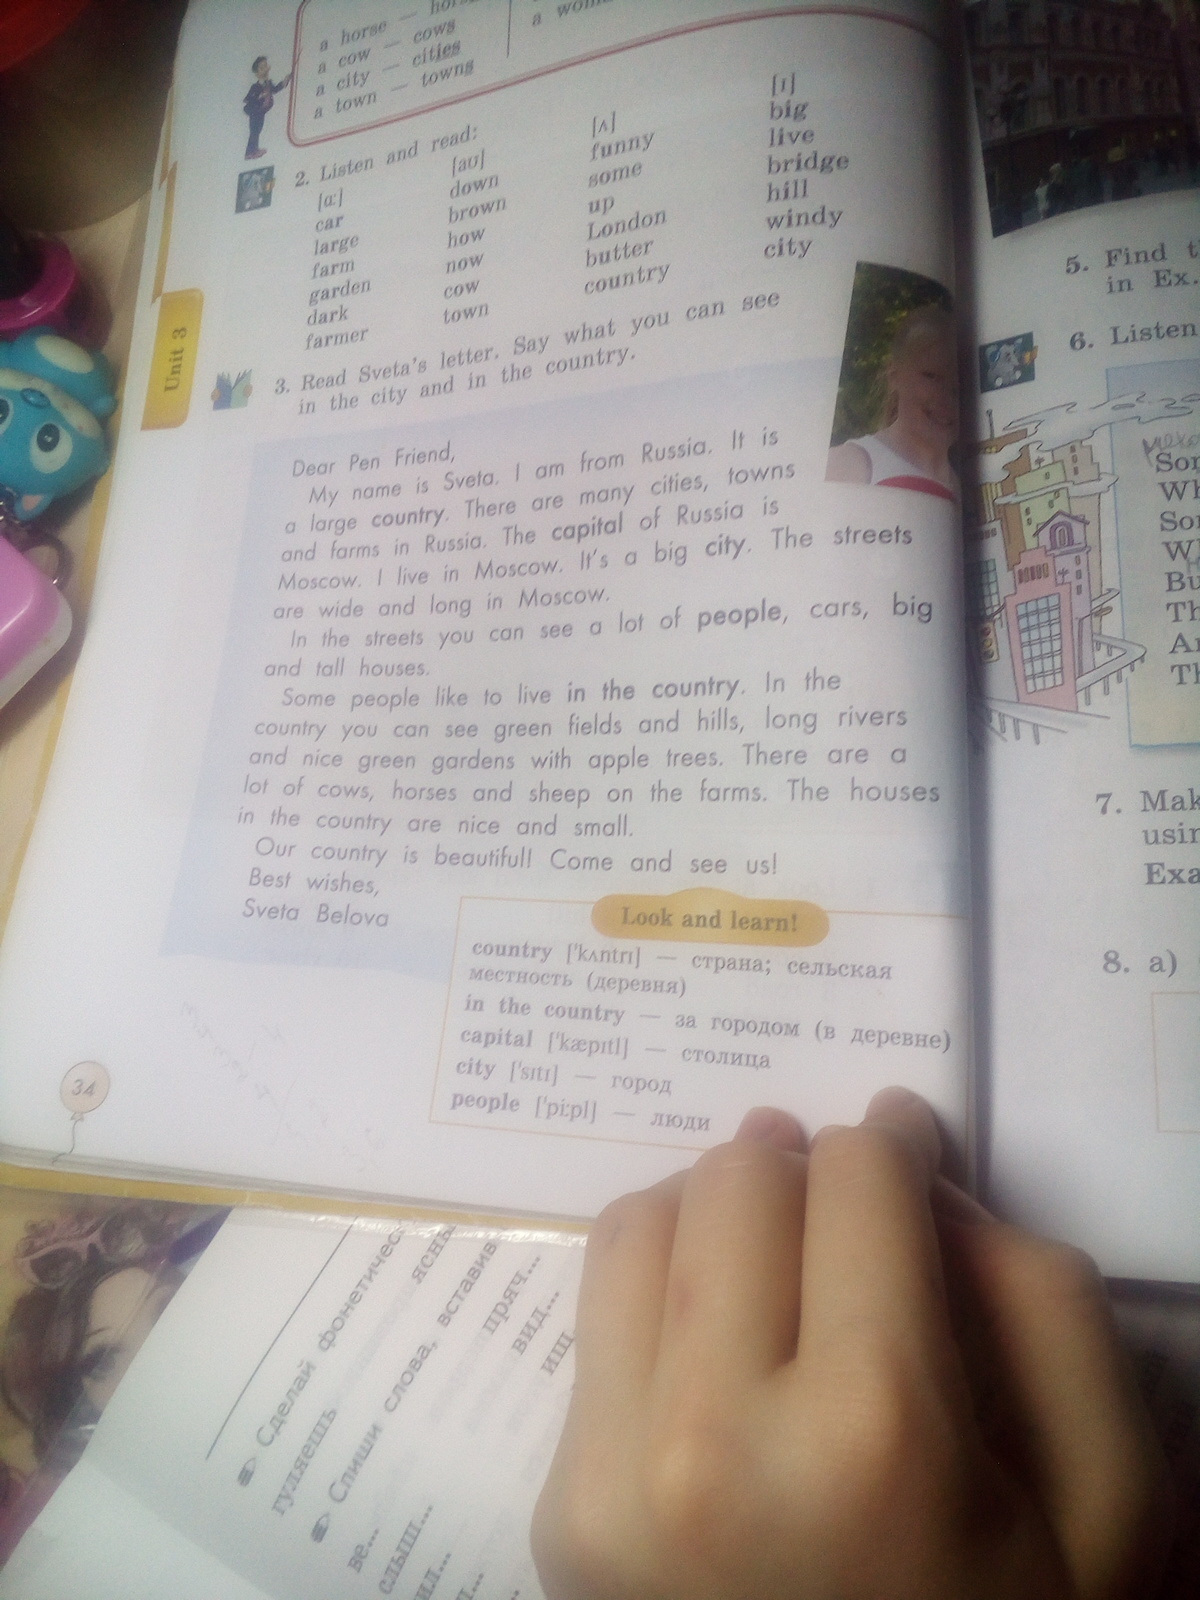 a horse —
a cow — cows
a city — cities
a town — towns
a
2. Listen and read:
[ɑ:]
car
large
farm
garden
dark
farmer
[aʊ]
down
brown
how
now
cow
town
[ʌ]
funny
some
up
London
butter
country
[ɪ]
big
live
bridge
hill
windy
city
Unit 3
3. Read Sveta's letter. Say what you can see
in the city and in the country.
Dear Pen Friend,
My name is Sveta. I am from Russia. It is
a large country. There are many cities, towns
and farms in Russia. The capital of Russia is
Moscow. I live in Moscow. It's a big city. The streets
are wide and long in Moscow.
In the streets you can see a lot of people, cars, big
and tall houses.
Some people like to live in the country. In the
country you can see green fields and hills, long rivers
and nice green gardens with apple trees. There are a
lot of cows, horses and sheep on the farms. The houses
in the country are nice and small.
Our country is beautiful! Come and see us!
Best wishes,
Sveta Belova
Look and learn!
country ['kʌntrɪ] — страна; сельская
местность (деревня)
in the country — за городом (в деревне)
capital ['kæpɪtl] — столица
city ['sɪtɪ] — город
people ['pi:pl] — люди
34
5. Find
in Ex.
6. Listen
7.
8. a)
Сделай
гуляешь
Спиши слова, вставив
пряч...
вид...
ве...
слыш...